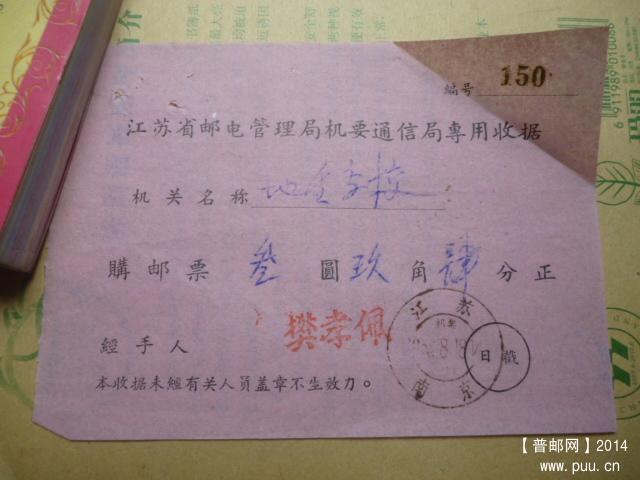 编号 150
江苏省邮电管理局机要通信局專用收据
机关名称 地質学校
購邮票 叁 圓 玖 角 肆 分正
經手人 樊孝佩
江苏
机要
8.18
南京
日戳
本收据未經有关人员盖章不生效力。
6 911989 010086
【普邮网】2014
www.puu.cn